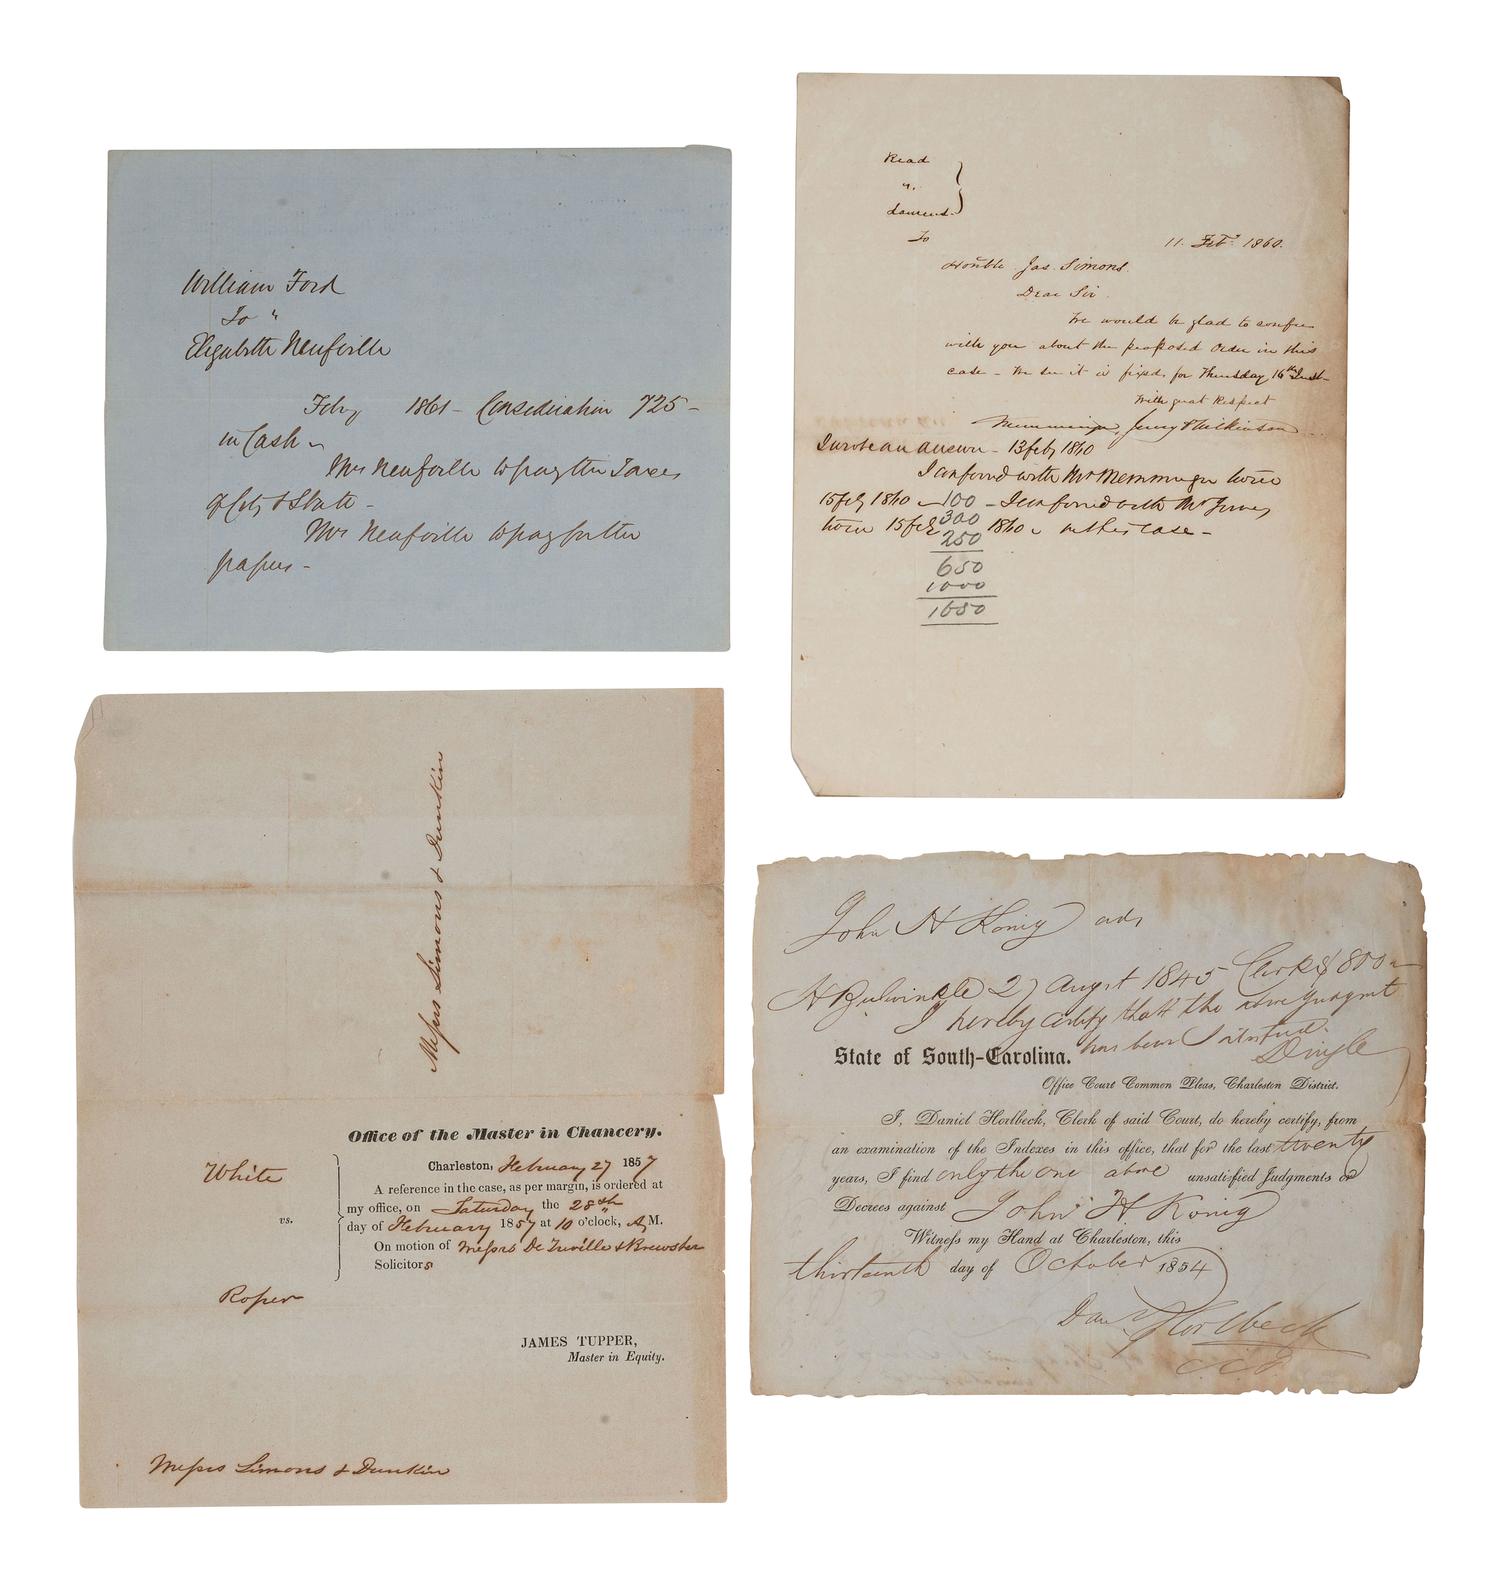 William Ford
To "
Elizabeth Neufville
Feby 1861 - Consideration 725 -
in Cash
Mrs Neufville to pay the Taxes
of City & State -
Mrs Neufville to pay for the
papers -
Read
v.
Laurens
To
11. Feby 1860.
Honble Jas. Simons.
Dear Sir.
We would be glad to confer
with you about the proposed Order in this
case - We see it is fixed for Thursday 16th Inst -
With great Respect
Memminger, Jervey & Wilkinson
I wrote an answer - 13 feby 1860
I conferred with Mr Memminger twice
15 feby 1860 - I conferred with Mr Jervey
twice 15 feby 1860 in this case -
100
300
250
650
1000
1650
Messrs Simons & Dunkin
Office of the Master in Chancery.
White
vs.
Roper
Charleston, February 27 1857
A reference in the case, as per margin, is ordered at
my office, on Saturday the 28th
day of February 1857 at 10 o'clock, A, M.
On motion of Messrs De Treville & Brewster
Solicitors
JAMES TUPPER,
Master in Equity.
Messrs Simons & Dunkin
John H Konig ads
H Bulwinkle 27 August 1845 Clerk $800
I hereby certify that the above Judgment
has been Satisfied.
Dingle
State of South-Carolina.
Office Court Common Pleas, Charleston District.
I, Daniel Horlbeck, Clerk of said Court, do hereby certify, from
an examination of the Indexes in this office, that for the last twenty
years, I find only the one above unsatisfied Judgments or
Decrees against John H Konig
Witness my Hand at Charleston, this
thirteenth day of October 1854
Danl Horlbeck